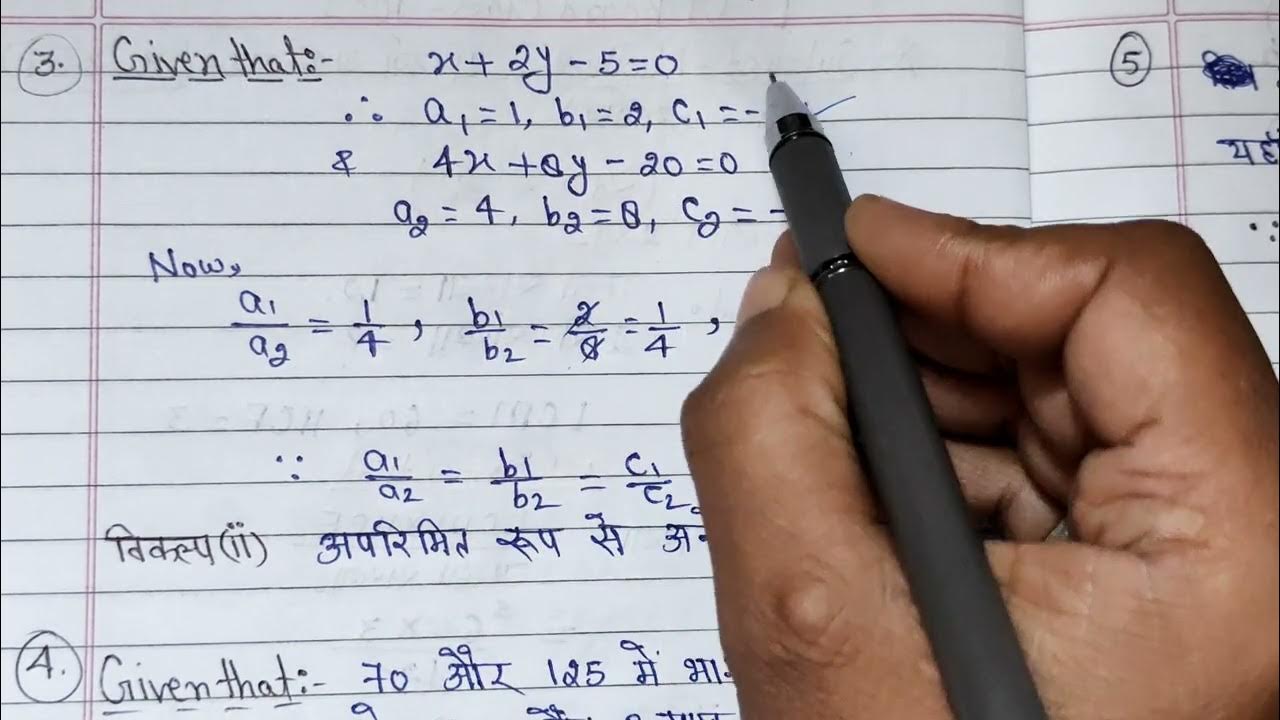 3. Given that:- x + 2y - 5 = 0
∴ a₁ = 1, b₁ = 2, c₁ = -
& 4x + 8y - 20 = 0
a₂ = 4, b₂ = 8, c₂ = -
Now,
a₁/a₂ = 1/4, b₁/b₂ = 2/8 = 1/4,
∵ a₁/a₂ = b₁/b₂ = c₁/c₂
विकल्प (ii) अपरिमित रूप से
4. Given that:- 70 और 125 में
5